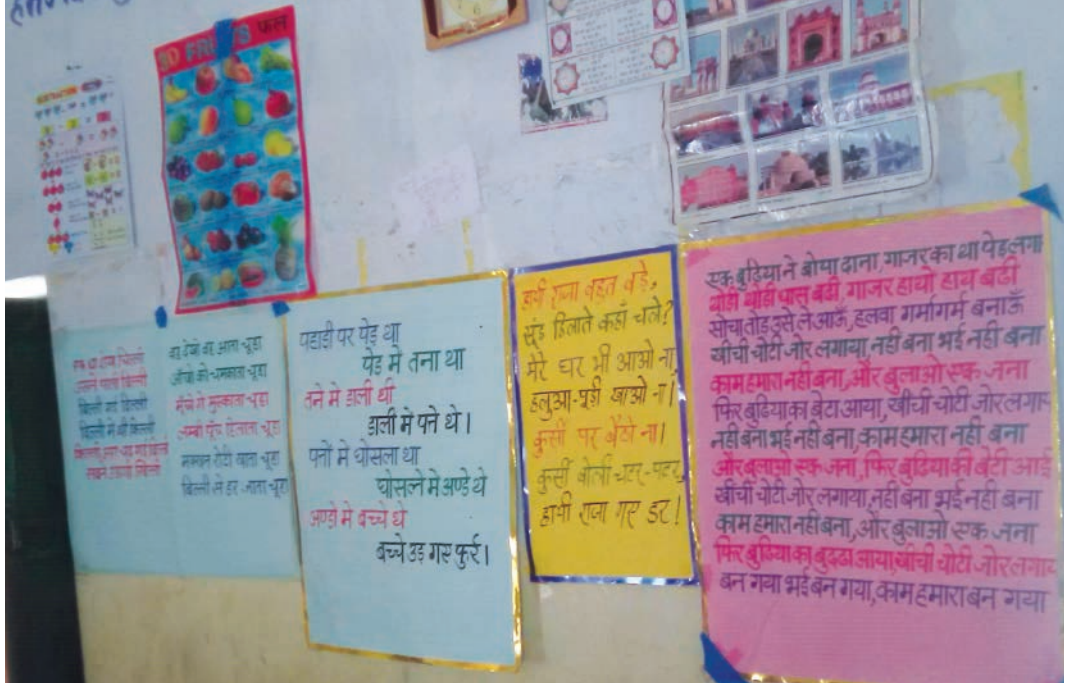 3D FRUITS फल
वह देखो वह आता चूहा
आँखो को चमकाता चूहा
मूँछो मे मुस्काता चूहा
लम्बी पूँछ हिलाता चूहा
मक्खन रोटी खाता चूहा
बिल्ली से डर जाता चूहा
पहाड़ी पर पेड़ था
पेड़ मे तना था
तने मे डाली थी
डाली मे पने थे।
पनो मे घोसला था
घोसले मे अण्डे थे
अण्डो मे बच्चे थे
बच्चे उड़ गए फुर्र।
हाथी राजा बहुत बड़े,
सूंड हिलाते कहाँ चले?
मेरे घर भी आओ ना,
हलुआ-पूड़ी खाओ ना।
कुर्सी पर बैठो ना।
कुर्सी बोली चटर-पटर,
हाथी राजा गए डर।
एक बुढिया ने बोया दाना, गाजर का था पेड़ लगा
थोडी थोडी पास बढी, गाजर हाथो हाथ बढी
सोचा तोड़ उसे ले आऊँ, हलवा गर्मागर्म बनाऊँ
खीची चोटी जोर लगाया, नही बना भई नही बना
काम हमारा नही बना, और बुलाओ एक जना
फिर बुढिया का बेटा आया, खीची चोटी जोर लगाया
नही बना भई नही बना, काम हमारा नही बना
और बुलाओ एक जना, फिर बुढिया की बेटी आई
खीची चोटी जोर लगाया, नही बना भई नही बना
काम हमारा नही बना, और बुलाओ एक जना
फिर बुढिया का बुढढा आया, खीची चोटी जोर लगाया
बन गया भई बन गया, काम हमारा बन गया